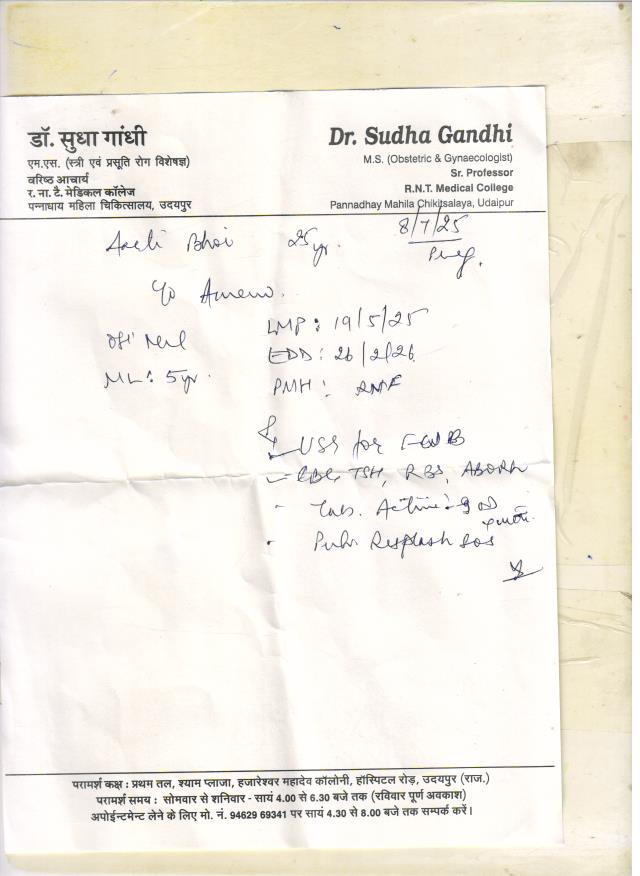 डॉ. सुधा गांधी
एम.एस. (स्त्री एवं प्रसूति रोग विशेषज्ञ)
वरिष्ठ आचार्य
र. ना. टै. मेडिकल कॉलेज
पन्नाधाय महिला चिकित्सालय, उदयपुर
Dr. Sudha Gandhi
M.S. (Obstetric & Gynaecologist)
Sr. Professor
R.N.T. Medical College
Pannadhay Mahila Chikitsalaya, Udaipur
8/7/25
Bhoi 25 yr.
LMP : 19/5/25
EDD : 26/2/26
ML : 5 yr.
PMH :
USG for FWB
CBC, TSH, RBS, ABORh
Tab.
sos
परामर्श कक्ष : प्रथम तल, श्याम प्लाजा, हजारेश्वर महादेव कॉलोनी, हॉस्पिटल रोड़, उदयपुर (राज.)
परामर्श समय : सोमवार से शनिवार - सायं 4.00 से 6.30 बजे तक (रविवार पूर्ण अवकाश)
अपोईन्टमेन्ट लेने के लिए मो. नं. 94629 69341 पर सायं 4.30 से 8.00 बजे तक सम्पर्क करें।